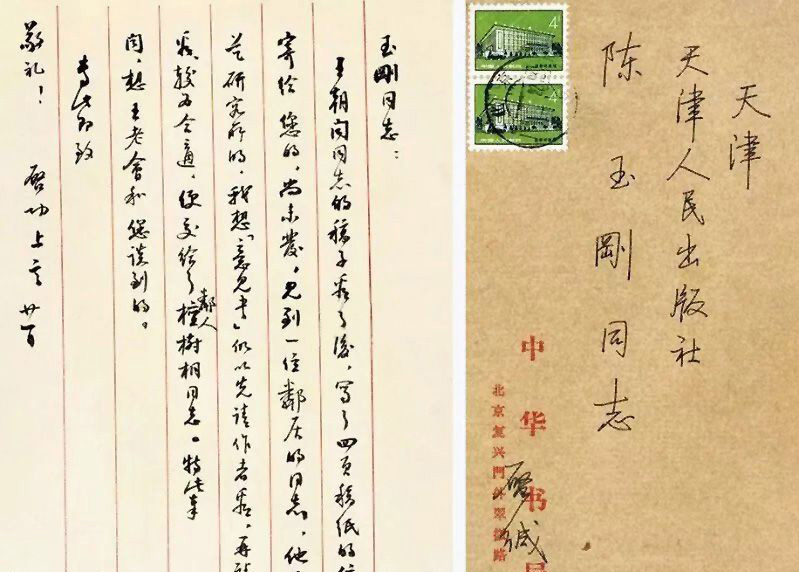 玉刚同志：
王朝闻同志的稿子看了后，写了四页稿纸的
寄给您的，尚未发，见到一位邻居的同志，他
艺研究所的，我想「意见书」似以先请作者看，再
看较为合适，便交给了邻人檀树桐同志。特此奉
闻，想王老会和您谈到的。
专此即致
敬礼！
启功上言 廿日
天津
天津人民出版社
陈玉刚同志
中华书局
北京复兴门外翠微路
启缄
4
4